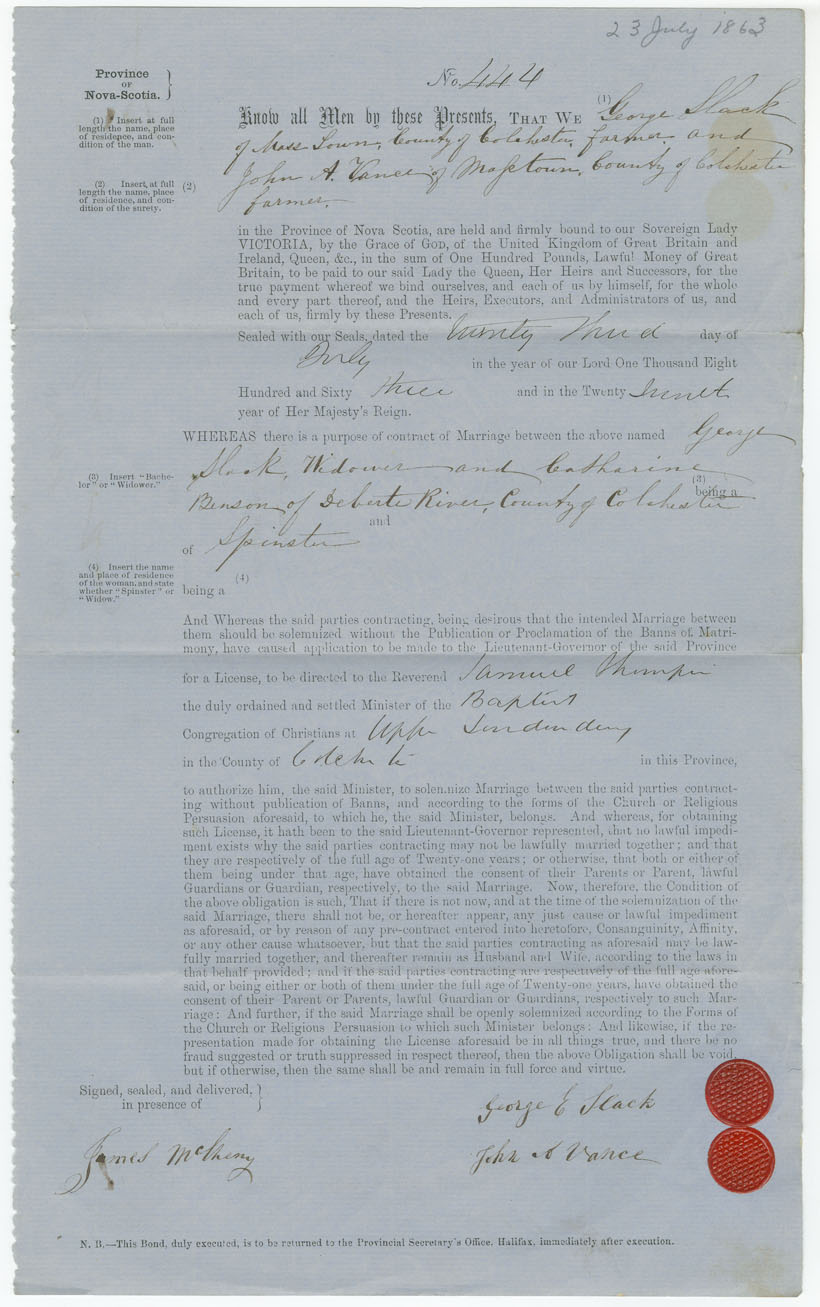 23 July 1863
Province
OF
Nova-Scotia.
No. 444
(1) Insert at full
length the name, place
of residence, and con-
dition of the man.
Know all Men by these Presents, THAT WE (1) George Slack
of Mass Town, County of Colchester, farmer and
(2) Insert, at full
length the name, place
of residence, and con-
dition of the surety.
(2) John A. Vance of Masstown, County of Colchester
farmer.
in the Province of Nova Scotia, are held and firmly bound to our Sovereign Lady
VICTORIA, by the Grace of GOD, of the United Kingdom of Great Britain and
Ireland, Queen, &c., in the sum of One Hundred Pounds, Lawful Money of Great
Britain, to be paid to our said Lady the Queen, Her Heirs and Successors, for the
true payment whereof we bind ourselves, and each of us by himself, for the whole
and every part thereof, and the Heirs, Executors, and Administrators of us, and
each of us, firmly by these Presents.
Sealed with our Seals, dated the twenty third day of
July in the year of our Lord One Thousand Eight
Hundred and Sixty three and in the Twenty
year of Her Majesty's Reign.
WHEREAS there is a purpose of contract of Marriage between the above named George
(3) Insert "Bache-
lor" or "Widower."
Slack, Widower and Catharine
(3)
being a
Benson of Deberte River, County of Colchester
and
of Spinster
(4) Insert the name
and place of residence
of the woman, and state
whether "Spinster" or
"Widow."
(4)
being a
And Whereas the said parties contracting, being desirous that the intended Marriage between
them should be solemnized without the Publication or Proclamation of the Banns of Matri-
mony, have caused application to be made to the Lieutenant-Governor of the said Province
for a License, to be directed to the Reverend Samuel
the duly ordained and settled Minister of the Baptist
Congregation of Christians at Upper Londonderry
in the County of Colchester in this Province,
to authorize him, the said Minister, to solemnize Marriage between the said parties contract-
ing without publication of Banns, and according to the forms of the Church or Religious
Persuasion aforesaid, to which he, the said Minister, belongs. And whereas, for obtaining
such License, it hath been to the said Lieutenant-Governor represented, that no lawful impedi-
ment exists why the said parties contracting may not be lawfully married together; and that
they are respectively of the full age of Twenty-one years; or otherwise, that both or either of
them being under that age, have obtained the consent of their Parents or Parent, lawful
Guardians or Guardian, respectively, to the said Marriage. Now, therefore, the Condition of
the above obligation is such, That if there is not now, and at the time of the solemnization of the
said Marriage, there shall not be, or hereafter appear, any just cause or lawful impediment
as aforesaid, or by reason of any pre-contract entered into heretofore, Consanguinity, Affinity,
or any other cause whatsoever, but that the said parties contracting as aforesaid may be law-
fully married together, and thereafter remain as Husband and Wife, according to the laws in
that behalf provided; and if the said parties contracting are respectively of the full age afore-
said, or being either or both of them under the full age of Twenty-one years, have obtained the
consent of their Parent or Parents, lawful Guardian or Guardians, respectively to such Mar-
riage: And further, if the said Marriage shall be openly solemnized according to the Forms of
the Church or Religious Persuasion to which such Minister belongs: And likewise, if the re-
presentation made for obtaining the License aforesaid be in all things true, and there be no
fraud suggested or truth suppressed in respect thereof, then the above Obligation shall be void,
but if otherwise, then the same shall be and remain in full force and virtue.
Signed, sealed, and delivered,
in presence of
George E Slack
James
John A Vance
N. B.—This Bond, duly executed, is to be returned to the Provincial Secretary's Office, Halifax, immediately after execution.